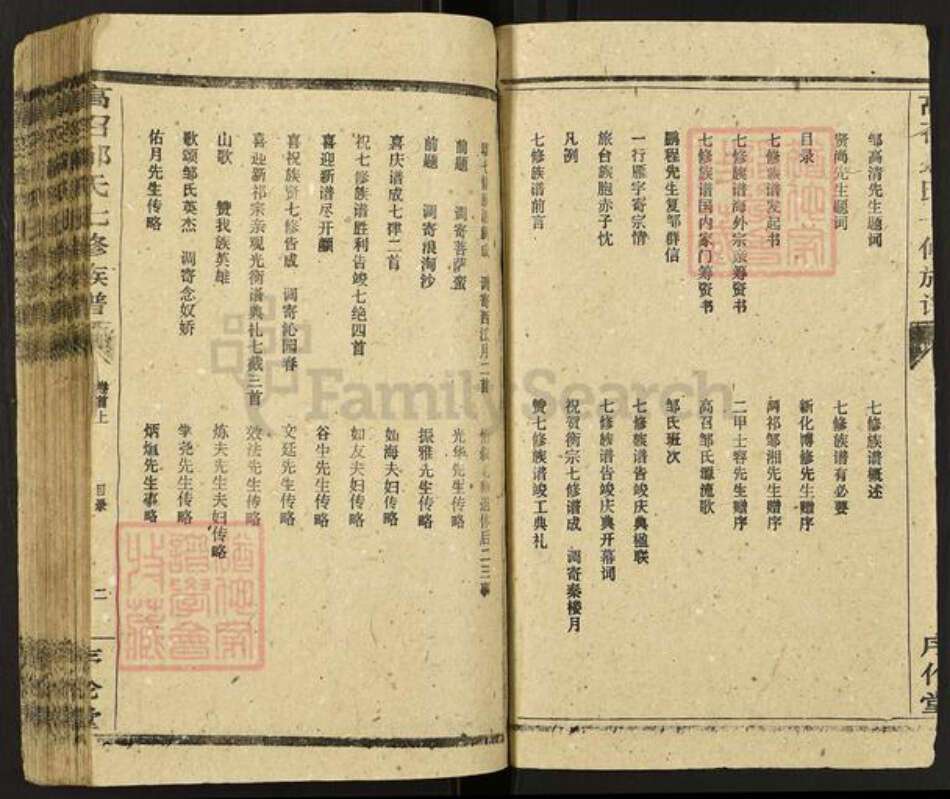 邹高清先生题词
贤尚先生题词
目录
七修族谱发起书
七修族谱海外宗亲筹资书
七修族谱国内家门筹资书
鹏程先生复邹群信
一行雁字寄宗情
旅台族胞赤子忱
凡例
七修族谱前言
七修族谱概述
七修族谱有必要
新化博修先生赠序
祁邹湘先生赠序
二甲士容先生赠序
高召邹氏源流歌
邹氏班次
七修族谱告竣庆典楹联
七修族谱告竣庆典开幕词
祝贺衡宗七修谱成 调寄秦楼月
赞七修族谱竣工典礼
序伦堂
调寄西江月二首
前题 调寄菩萨蛮
前题 调寄浪淘沙
喜庆谱成七律二首
祝七修族谱胜利告竣七绝四首
喜迎新谱尽开颜
喜祝族贤七修告成 调寄沁园春
喜迎新祁宗亲观光衡谱典礼七截三首
山歌 赞我族英雄
歌颂邹氏英杰 调寄念奴娇
佑月先生传略
退休后二三事
光华先生传略
振雅先生传略
灿海夫妇传略
如友夫妇传略
谷中先生传略
文廷先生传略
效法先生传略
炼夫先生夫妇传略
学尧先生传略
炳烜先生事略
高召邹氏七修族谱
卷首上
目录
二
序伦堂
FamilySearch